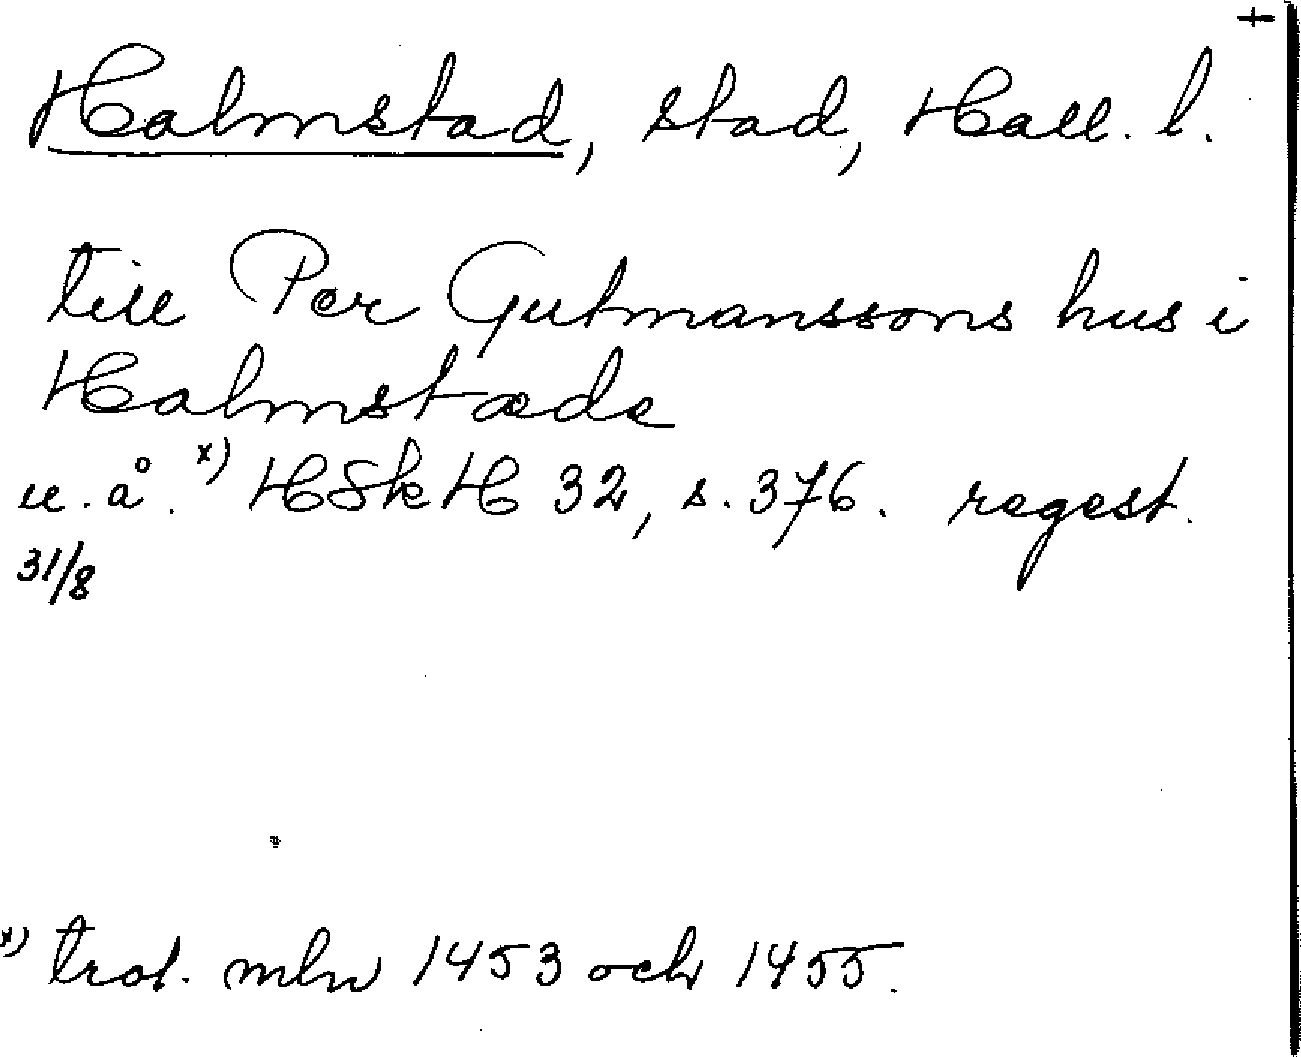 +
Halmstad, stad, Hall. l.
till Per Gutmanssons hus i
Halmstæde
u. å. x) HSkH 32, s. 376. regest.
31/8
x) trol. mln 1453 och 1455.